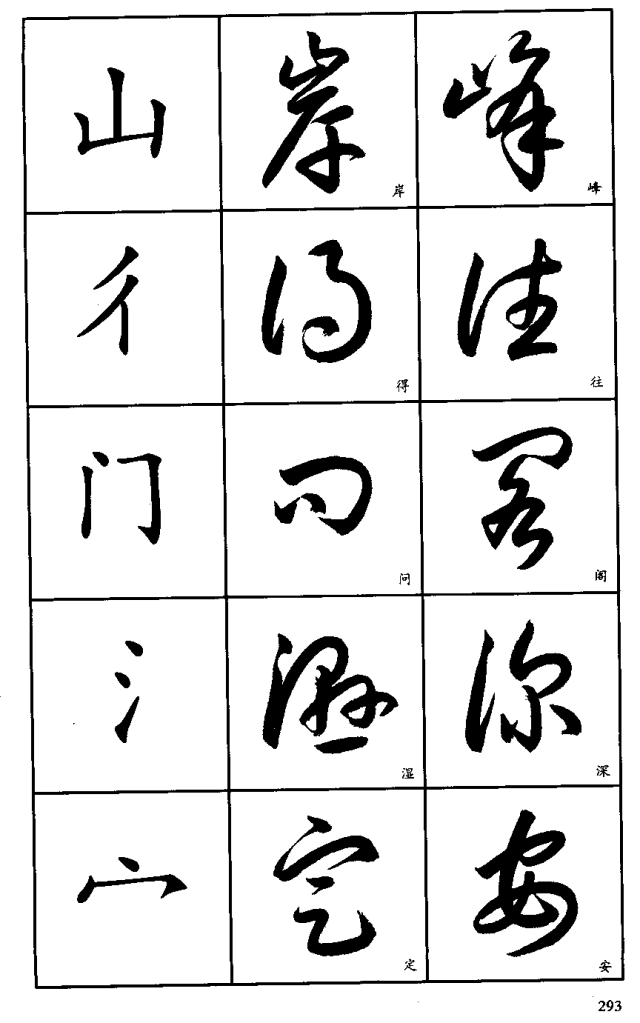 山 岸 峰
岸 峰
彳 得 往
得 往
门 问 阁
问 阁
氵 湿 深
湿 深
宀 定 安
定 安
293